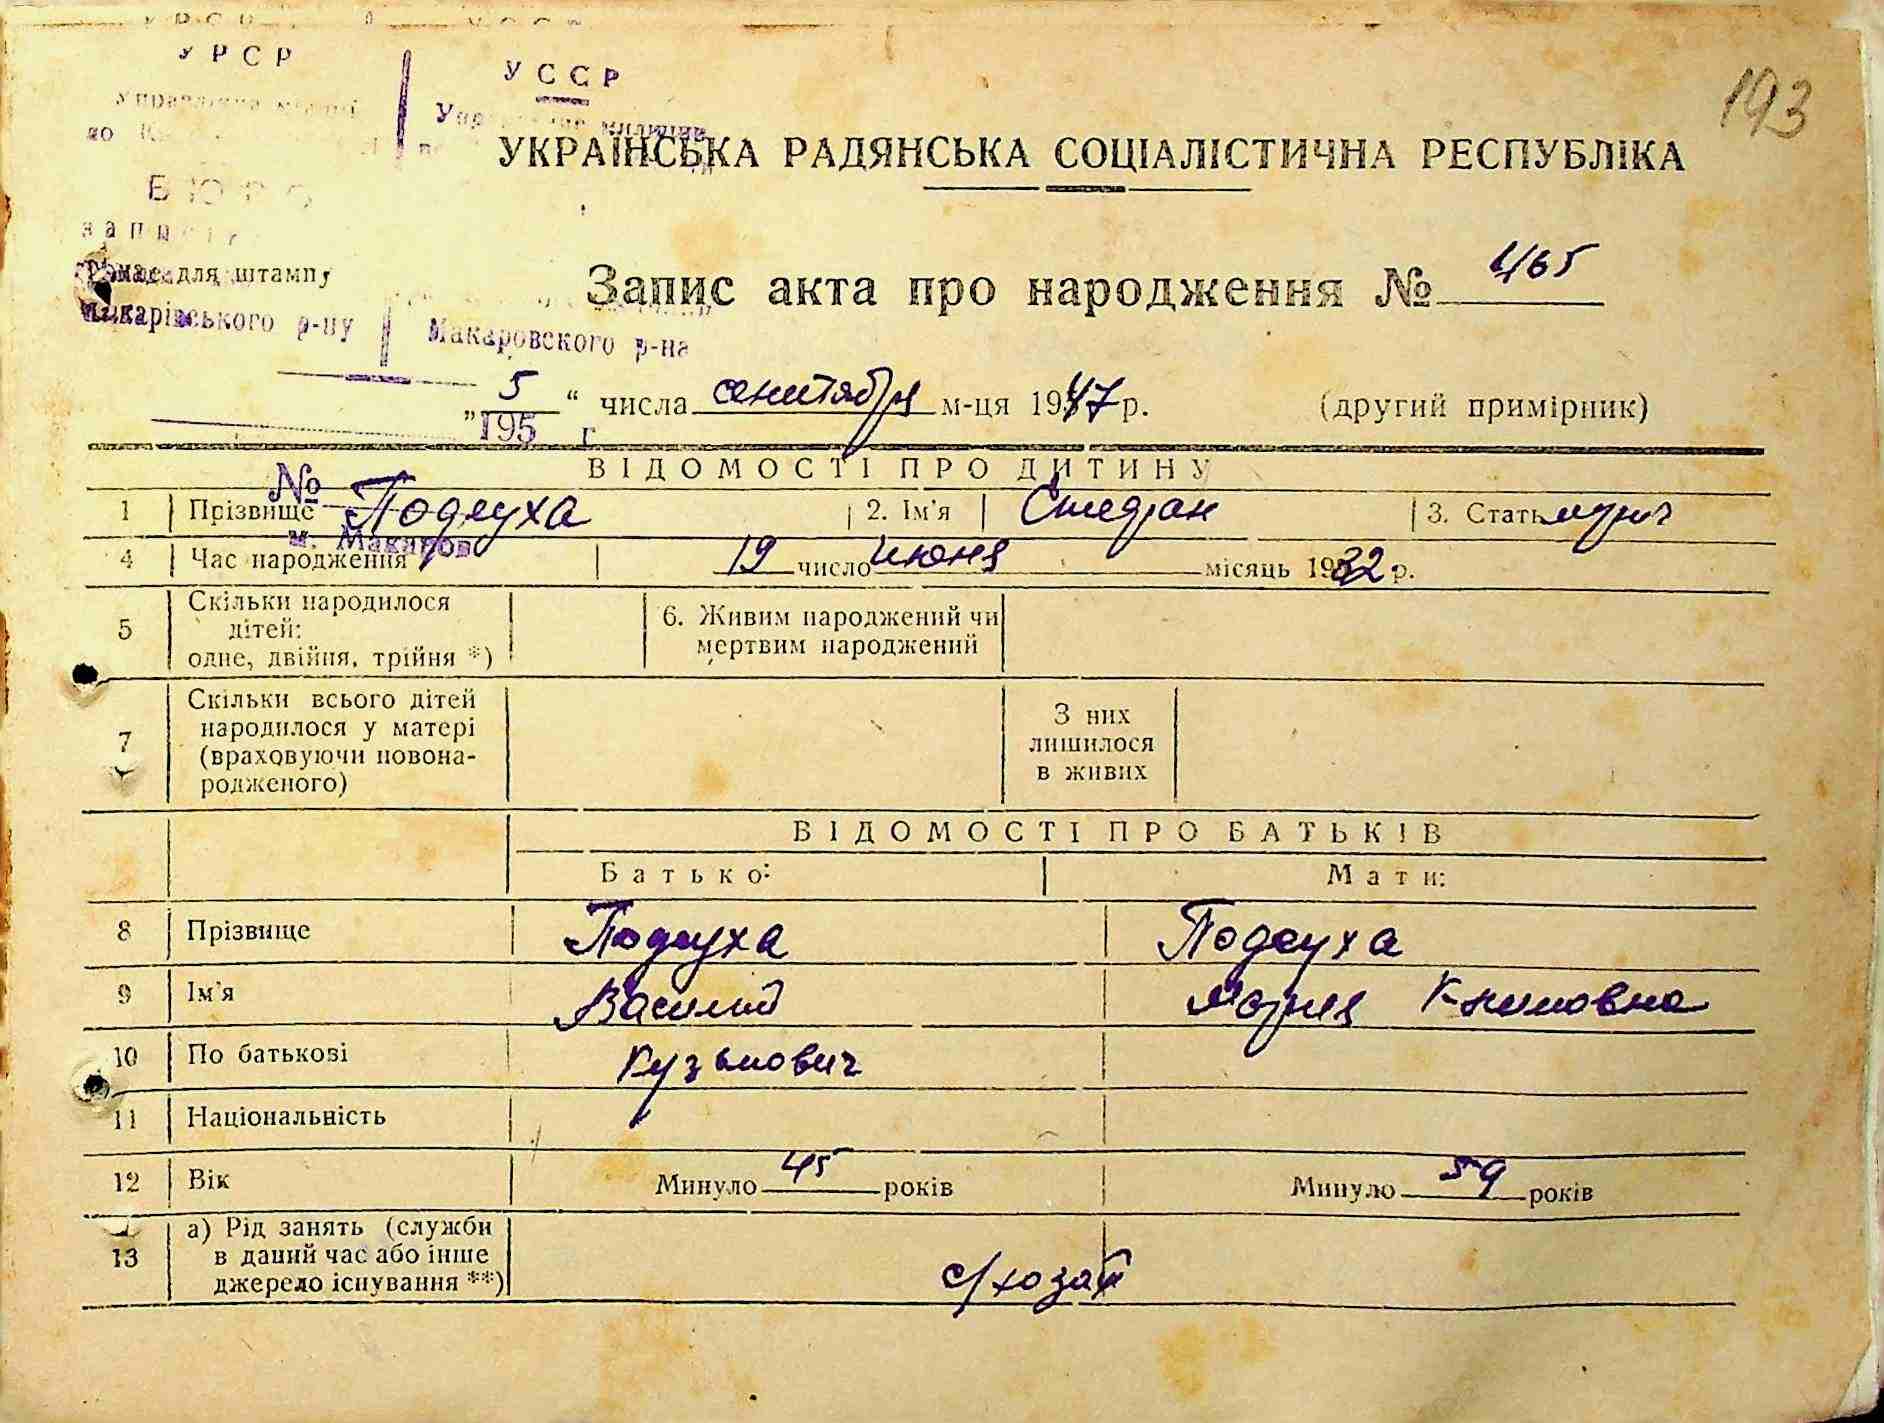 УРСР
УССР
193
УКРАЇНСЬКА РАДЯНСЬКА СОЦІАЛІСТИЧНА РЕСПУБЛІКА
Запис акта про народження № 465
для штампу
Макарівського р-ну
Макаровского р-на
„ 5 “ числа сентября м-ця 1947 р. (другий примірник)
195 г
ВІДОМОСТІ ПРО ДИТИНУ
№
1 Прізвище Подсуха 2. Ім'я Степан 3. Стать
м. Макаров
4 Час народження 19 число июня місяць 1932 р.
5 Скільки народилося дітей: одне, двійня, трійня *) 6. Живим народжений чи мертвим народжений
7 Скільки всього дітей народилося у матері (враховуючи новонародженого) З них лишилося в живих
ВІДОМОСТІ ПРО БАТЬКІВ
Батько: Мати:
8 Прізвище Подсуха Подсуха
9 Ім'я Василий Мария
10 По батькові Кузьмович
11 Національність
12 Вік Минуло 45 років Минуло 59 років
13 а) Рід занять (служби в даний час або інше джерело існування **)